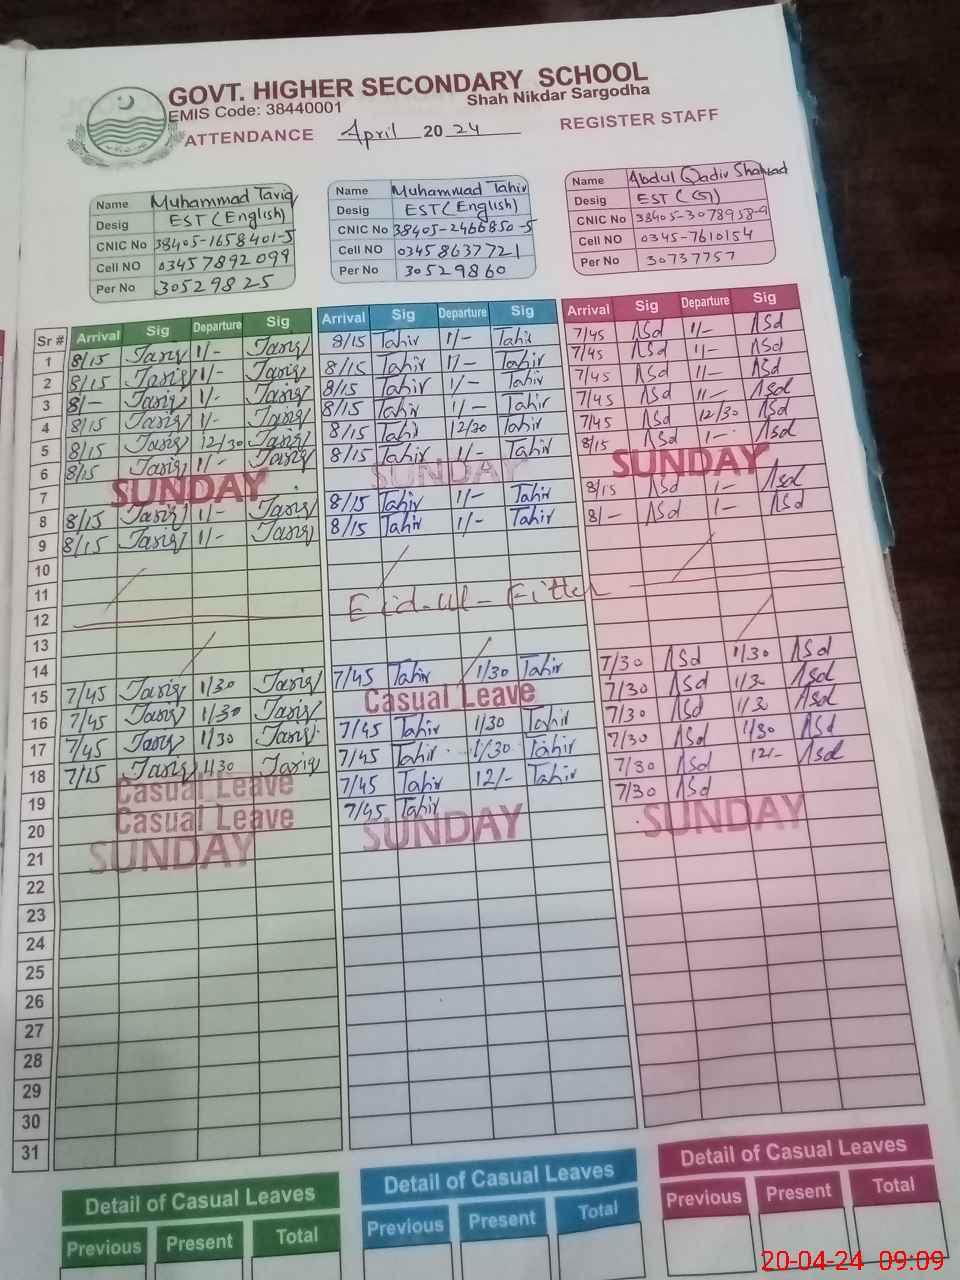 GOVT. HIGHER SECONDARY SCHOOL
EMIS Code: 38440001 Shah Nikdar Sargodha
ATTENDANCE April 2024 REGISTER STAFF
Name Muhammad Tariq
Desig EST (English)
CNIC No 38405-1658401-5
Cell NO 03457892099
Per No 30529825
Name Muhammad Tahir
Desig EST (English)
CNIC No 38405-2466850-5
Cell NO 03458637721
Per No 30529860
Name Abdul Qadir Shahzad
Desig EST (G)
CNIC No 38405-3078958-9
Cell NO 0345-7610154
Per No 30737757
Sr # Arrival Sig Departure Sig Arrival Sig Departure Sig Arrival Sig Departure Sig
1 8/15 Tariq 1/- Tariq 8/15 Tahir 1/- Tahir 7/45 ASd 1/- ASd
2 8/15 Tariq 1/- Tariq 8/15 Tahir 1/- Tahir 7/45 ASd 1/- ASd
3 8/- Tariq 1/- Tariq 8/15 Tahir 1/- Tahir 7/45 ASd 1/- ASd
4 8/15 Tariq 1/- Tariq 8/15 Tahir 1/- Tahir 7/45 ASd 1/- ASd
5 8/15 Tariq 12/30 Tariq 8/15 Tahir 12/30 Tahir 7/45 ASd 12/30 ASd
6 8/15 Tariq 1/- Tariq 8/15 Tahir 1/- Tahir 8/15 ASd 1- ASd
7 SUNDAY SUNDAY SUNDAY
8 8/15 Tariq 1/- Tariq 8/15 Tahir 1/- Tahir 8/15 ASd 1- ASd
9 8/15 Tariq 1/- Tariq 8/15 Tahir 1/- Tahir 8/- ASd 1- ASd
10
11
12 Eid-ul-Fitter
13
14
15 7/45 Tariq 1/30 Tariq 7/45 Tahir 1/30 Tahir 7/30 ASd 1/30 ASd
16 7/45 Tariq 1/30 Tariq Casual Leave 7/30 ASd 1/3 ASd
17 7/45 Tariq 1/30 Tariq 7/45 Tahir 1/30 Tahir 7/30 ASd 1/3 ASd
18 7/15 Tariq 1/30 Tariq 7/45 Tahir 1/30 Tahir 7/30 ASd 1/30 ASd
19 Casual Leave 7/45 Tahir 12/- Tahir 7/30 ASd 12/- ASd
20 Casual Leave 7/45 Tahir 7/30 ASd
21 SUNDAY SUNDAY SUNDAY
22
23
24
25
26
27
28
29
30
31
Detail of Casual Leaves Detail of Casual Leaves Detail of Casual Leaves
Previous Present Total Previous Present Total Previous Present Total
20-04-24 09:09